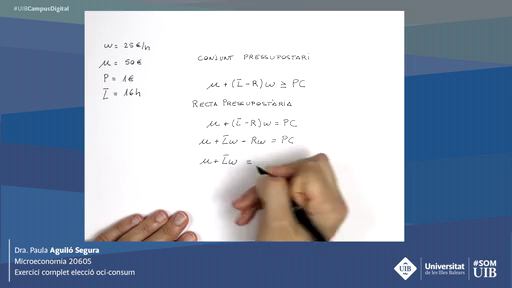 #UIBCampusDigital
w = 25€/h
μ = 50€
P = 1€
Ī = 16h
CONJUNT PRESSUPOSTARI
μ + (Ī - R)w ≥ PC
RECTA PRESSUPOSTÀRIA
μ + (Ī - R)w = PC
μ + Īw - Rw = PC
μ + Īw =
Dra. Paula Aguiló Segura
Microeconomia 20605
Exercici complet elecció oci-consum
UIB
Universitat
de les Illes Balears
#SOM
UIB